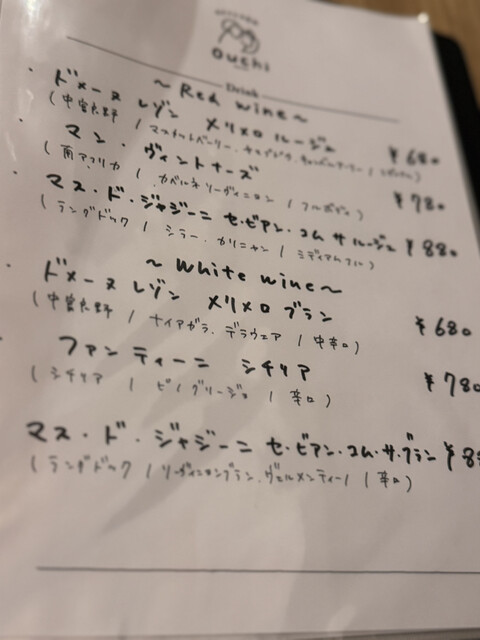 ouchi
Drink
~ Red wine ~
・ドメーヌ レゾン メリメロ ルージュ ¥680
(中富良野 / マスカットベーリー
・マン・ヴィントナーズ ¥780
(南アフリカ / カベルネソーヴィニヨン / フルボディ)
・マス・ド・ジャジーニ セ・ビアン・コム サ ルージュ ¥880
(ラングドック / シラー、カリニャン / ミディアムフル)
~ White wine ~
・ドメーヌ レゾン メリメロ ブラン ¥680
(中富良野 / ナイアガラ、デラウェア / 中辛口)
・ファンティーニ シチリア ¥780
(シチリア / ピノグリージョ / 辛口)
マス・ド・ジャジーニ セ・ビアン・コム・サ・ブラン ¥88
(ラングドック / ソーヴィニヨンブラン、ヴェルメンティーノ / 辛口)